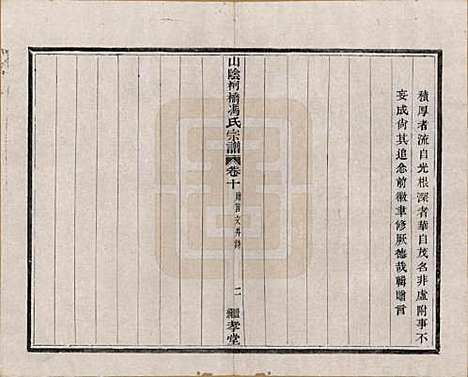 積厚者流自光根深者華自茂名非虛附事不
妄成尙其追念前徽聿修厥德哉輯贈言
山陰柯橋馮氏宗譜
卷十
贈言文并詩
二
繼孝堂